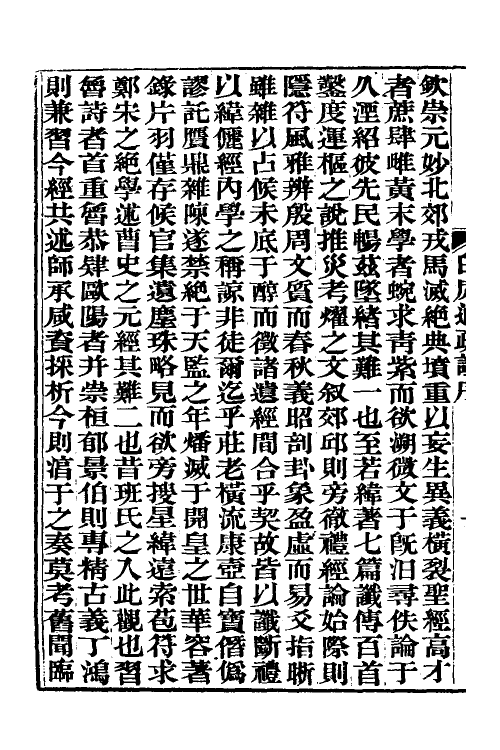 欽崇元妙北郊戎馬滅絕典墳重以妄生異義橫裂聖經高才
者蔗肆雌黃末學者蜿求靑紫而欲溯微文于旣汨尋佚論于
久湮紹彼先民暢茲墜緒其難一也至若緯著七篇讖傳百首
鑿度運樞之說推災考燿之文叙郊邱則旁徵禮經論始際則
隱符風雅辨殷周文質而春秋義昭剖卦象盈虛而易爻指晰
雖雜以占候未底于醇而徵諸遺經間合乎契故皆以讖斷禮
以緯儷經內學之稱諒非徒爾迄乎莊老橫流康壺自寶僭僞
謬託贗鼎雜陳遂禁絕于天監之年燔滅于開皇之世華容著
錄片羽僅存候官集遺塵珠略見而欲旁搜星緯遠索苞符求
鄭宋之絕學述曹史之元經其難二也昔班氏之入此觀也習
魯詩者首重魯恭肄歐陽者并崇桓郁景伯則專精古義丁鴻
則兼習今經共述師承咸資採析今則淯于之奏莫考舊聞臨